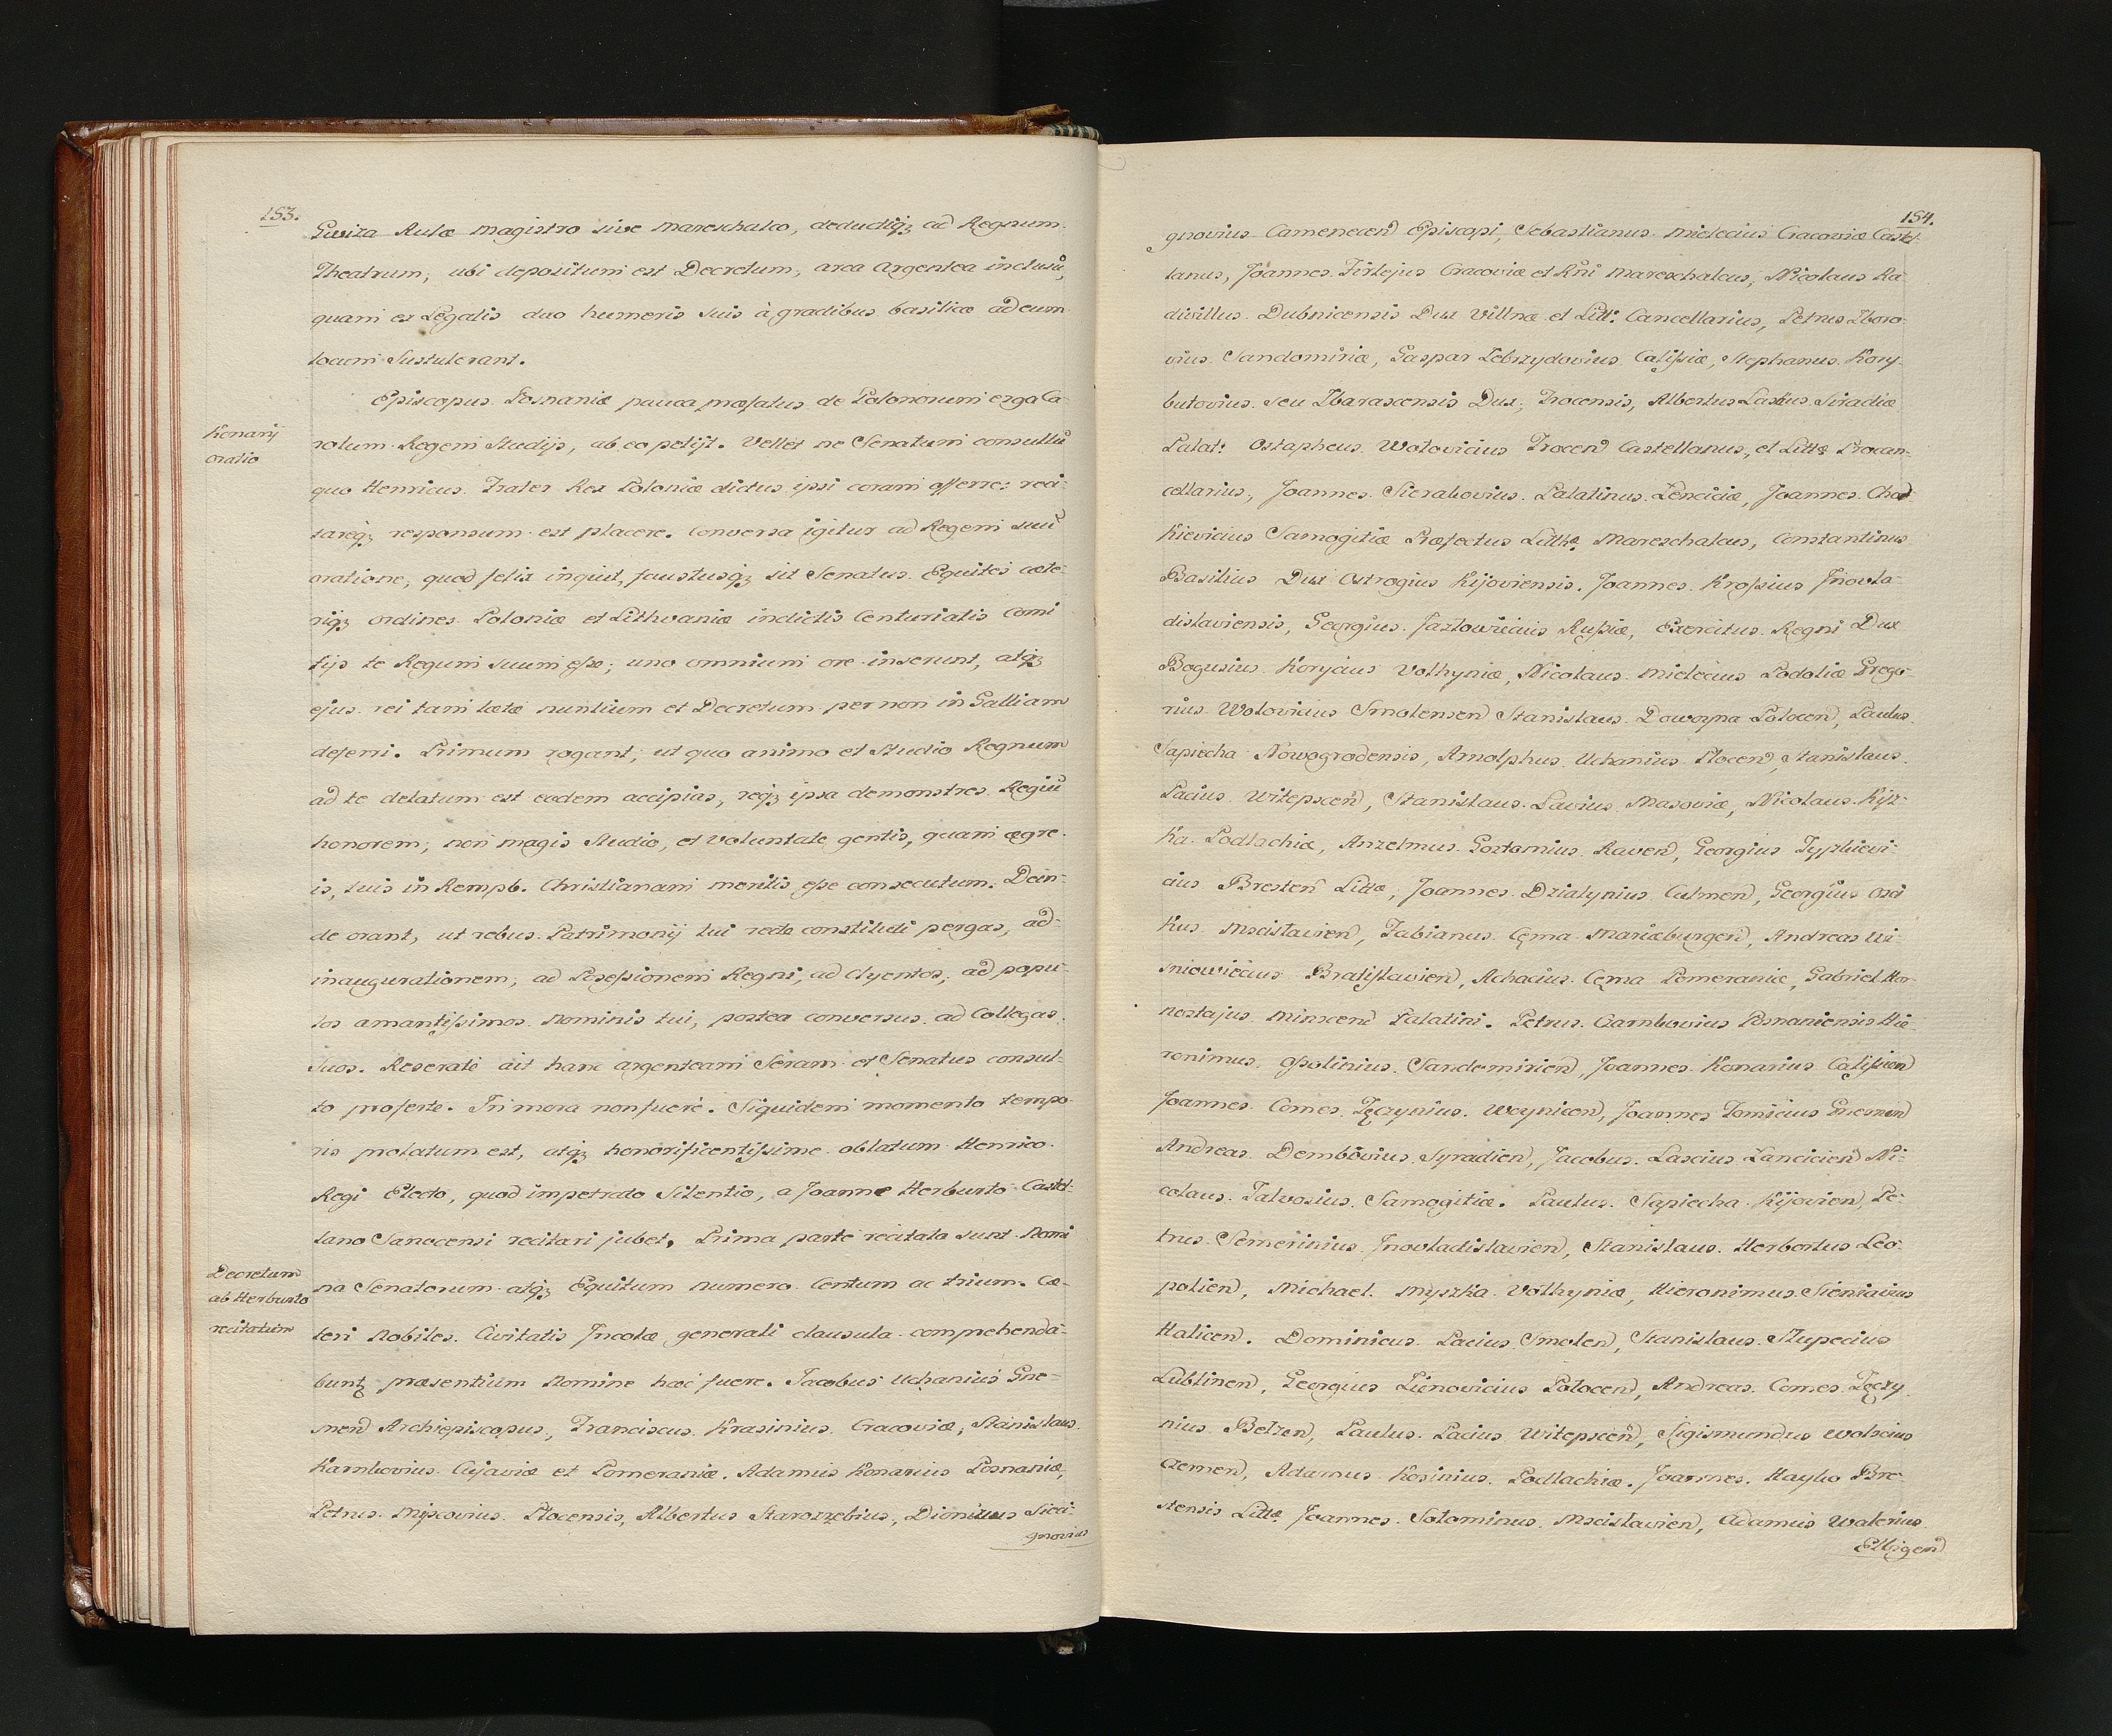 153.
Gwiza Aulæ magistro sive mareschalco, deducliq; ad Regnum
Theatrum, ubi depositum est Decretum, arca argentea inclusũ,
quam ex Legatis duo humeris suis à gradibus basilicæ ad eum
locum Sustulerant.
Episcopus Posnaniæ pauca præfatus de Polonorum erga Ca-
Konarij
oratio
rolum Regem Studijs, ab eo petijt. Vellet ne Senatum consultũ
quo Henricus Frater Rex Poloniæ dictus ipsi coram offerre: reci-
tareq; responsum est placere. Conversa igitur ad Regem suũ
oratione, quod felix inquit, faustusq; sit Senatus Equites cæte-
riq; ordines Poloniæ et Lithvaniæ indictis Centuriatis Comi
tijs te Regum suum esse; uno omnium ore inserunt, atq;
ejus rei tam lætæ nuntium et Decretum per non in Galliam
deferri. Primum rogant, ut quo animo et Studio Regnum
ad te delatum est eadem accipias, req; ipsa demonstres Regiũ
honorem, non magis Studio, et voluntate gentis, quam egre-
is, tuis in Rempb. Christianam meritis esse consecutum. Dein-
de orant, ut rebus Patrimonij tui recte constitutis pergas, ad
inaugurationem, ad Possessionem Regni, ad clyentes, ad popu-
los amantissimos Nominis tui, postea conversus ad Collegas
suos. Reserate ait hanc argenteam Seram et Senatus consul-
to proferte. In mora non fuere. Siquidem momento tempo
ris prolatum est, atq; honorificentissime oblatum Henrico
Regi Electo, quod impetrato Silentio, a Joanne Herburto Castel-
lano Sanocensi recitari jubet, Prima parte recitata sunt Nomi
Decretum
ab Herburto
recitatum
na Senatorum atq; Equitum numero Centum ac trium. Cæ-
teri Nobiles. Civitatis Incolæ generali clausula comprehenda-
buntꝫ præsentium Nomine hæc fuere. Jacobus Uchanius Gne-
snen Archiepiscopus, Franciscus Krasinius Cracoviæ, Stanislaus
Karnkovius Cujaviæ et Pomeraniæ, Adamus Konarius Posnaniæ,
Petrus Miscovius Plocensis, Albertus Starozrebius, Dionisius Sici-
gnovius
154.
gnovius Camenecen Episcopi, Sebastianus Mielecius Cracoviæ Castel-
lanus, Joannes Firlejus Cracoviæ et Rñi Mareschalcus, Nicolaus Ra-
divillus Dubnicensis Dux Villnæ et Litt: Cancellarius, Petrus Zboro-
vius Sandomiriæ, Gaspar Zebrzydovius Calissiæ, Stephanus Kory-
butovius seu Zbarascensis Dux, Trocensis, Albertus Laskius Siradiæ
Palat: Ostapheus Wolovicius Trocen Castellanus, et Littæ Procan-
cellarius, Joannes Sierakovius Palatinus Lenciciæ, Joannes Chod-
kievicius Samogitiæ Præfectus Littæ Mareschalcus, Constantinus
Basilius Dux Ostrogius Kijoviensis. Joannes Krossius Inovla-
dislaviensis, Georgius Jazlowiecius Russiæ, Exercitus Regni Dux
Bogusius Korycius Volhyniæ, Nicolaus Mielecius Podoliæ Grego-
rius Wolovicius Smolensen Stanislaus Dowoyna Polocen, Paulus
Sapiecha Nowogrodensis, Arnolphus Uchanius Plocen, Stanislaus
Pacius Witepscen, Stanislaus Lavius Masoviæ, Nicolaus Kisz-
ka Podlachiæ, Anzelmus Gostomius Raven, Georgius Tyszkievi-
cius Bresten Littæ, Joannes Dzialynius Culmen, Georgius Osci
kus Mscislavien, Fabianus Cęma Mariæburgen, Andreas Wi-
sniowiecius Bratislavien, Achacius Cęma Pomeraniæ, Gabriel Hor-
nostajus Minscen Palatini. Petrus Czarnkovius Posnaniensis Hie-
ronimus Ossolinius Sandomirien, Joannes Konarius Calissien
Joannes Comes Tęczynius Woynicen, Joannes Tomicius Gnesnen
Andreas Dembovius Syradien, Jacobus Lascius Lancicien Ni-
colaus Talvosius Samogitiæ. Paulus Sapiecha Kijovien, Pe-
trus Semerinius Inovladislavien, Stanislaus Herbortus Leo-
polien, Michael Myszka Volhyniæ, Hieronimus Sieniavius
Halicen. Dominicus Pacius Smolen, Stanislaus Slupecius
Lublinen, Georgius Zienovicius Polocen, Andreas Comes Tęczy-
nius Belzen, Paulus Pacius Witepscen, Sigismundus Wolscius
Czernen, Adamus Kosinius Podlachiæ. Joannes Hayko Bre-
stensis Littæ Joannes Solominus Mscislavien, Adamus Walerius
Elbigen